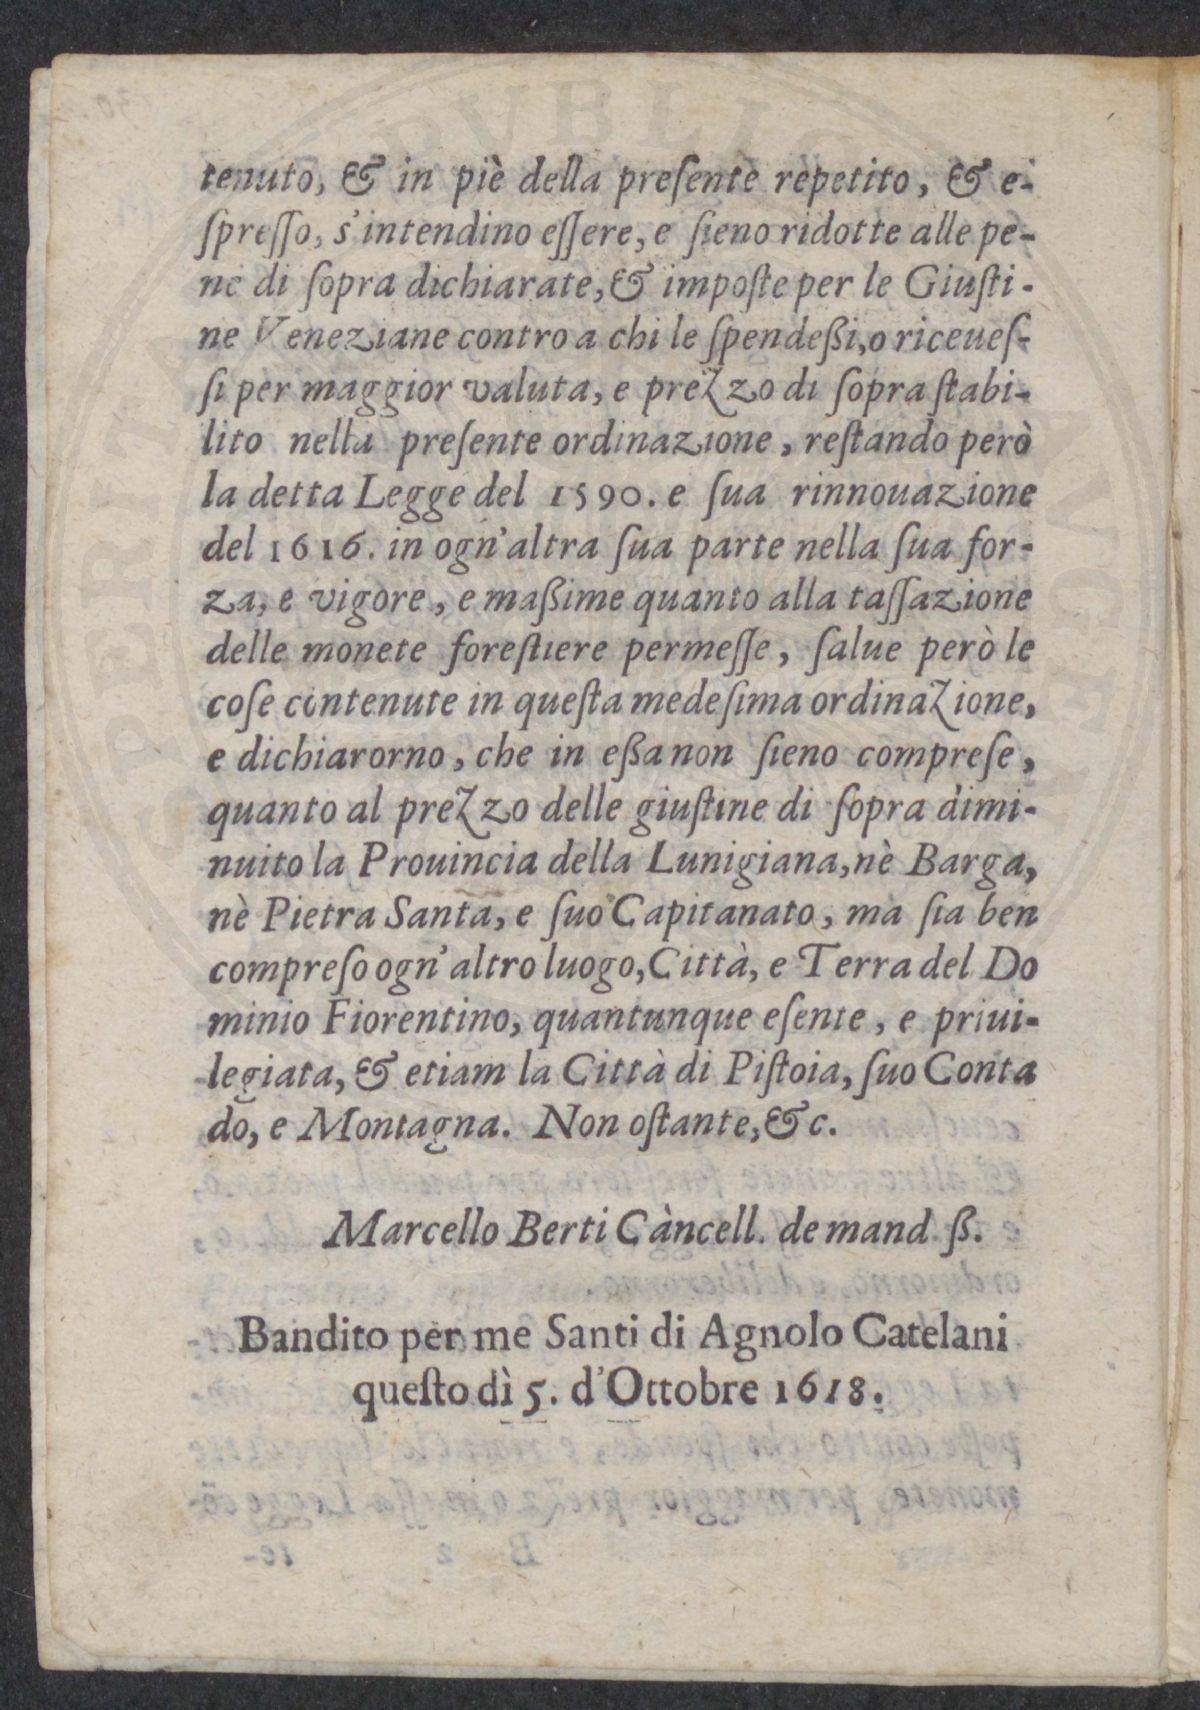 tenuto, & in piè della preſente repetito, & e-
ſpreſſo, s'intendino eſſere, e ſieno ridotte alle pe-
ne di ſopra dichiarate, & impoſte per le Giuſti-
ne Veneziane contro a chi le ſpendeßi, o riceueſ-
ſi per maggior valuta, e prezzo di ſopra ſtabi-
lito nella preſente ordinazione, reſtando però
la detta Legge del 1590. e ſua rinnouazione
del 1616. in ogn'altra ſua parte nella ſua for-
za, e vigore, e maßime quanto alla taſſazione
delle monete foreſtiere permeſſe, ſalue però le
coſe contenute in queſta medeſima ordinazione,
e dichiarorno, che in eßa non ſieno compreſe,
quanto al prezzo delle giuſtine di ſopra dimi-
nuito la Prouincia della Lunigiana, nè Barga,
nè Pietra Santa, e ſuo Capitanato, ma ſia ben
compreſo ogn'altro luogo, Città, e Terra del Do
minio Fiorentino, quantunque eſente, e priui-
legiata, & etiam la Città di Piſtoia, ſuo Conta
do, e Montagna. Non oſtante, &c.
Marcello Berti Càncell. de mand. ß.
Bandito per me Santi di Agnolo Catelani
queſto dì 5. d'Ottobre 1618.